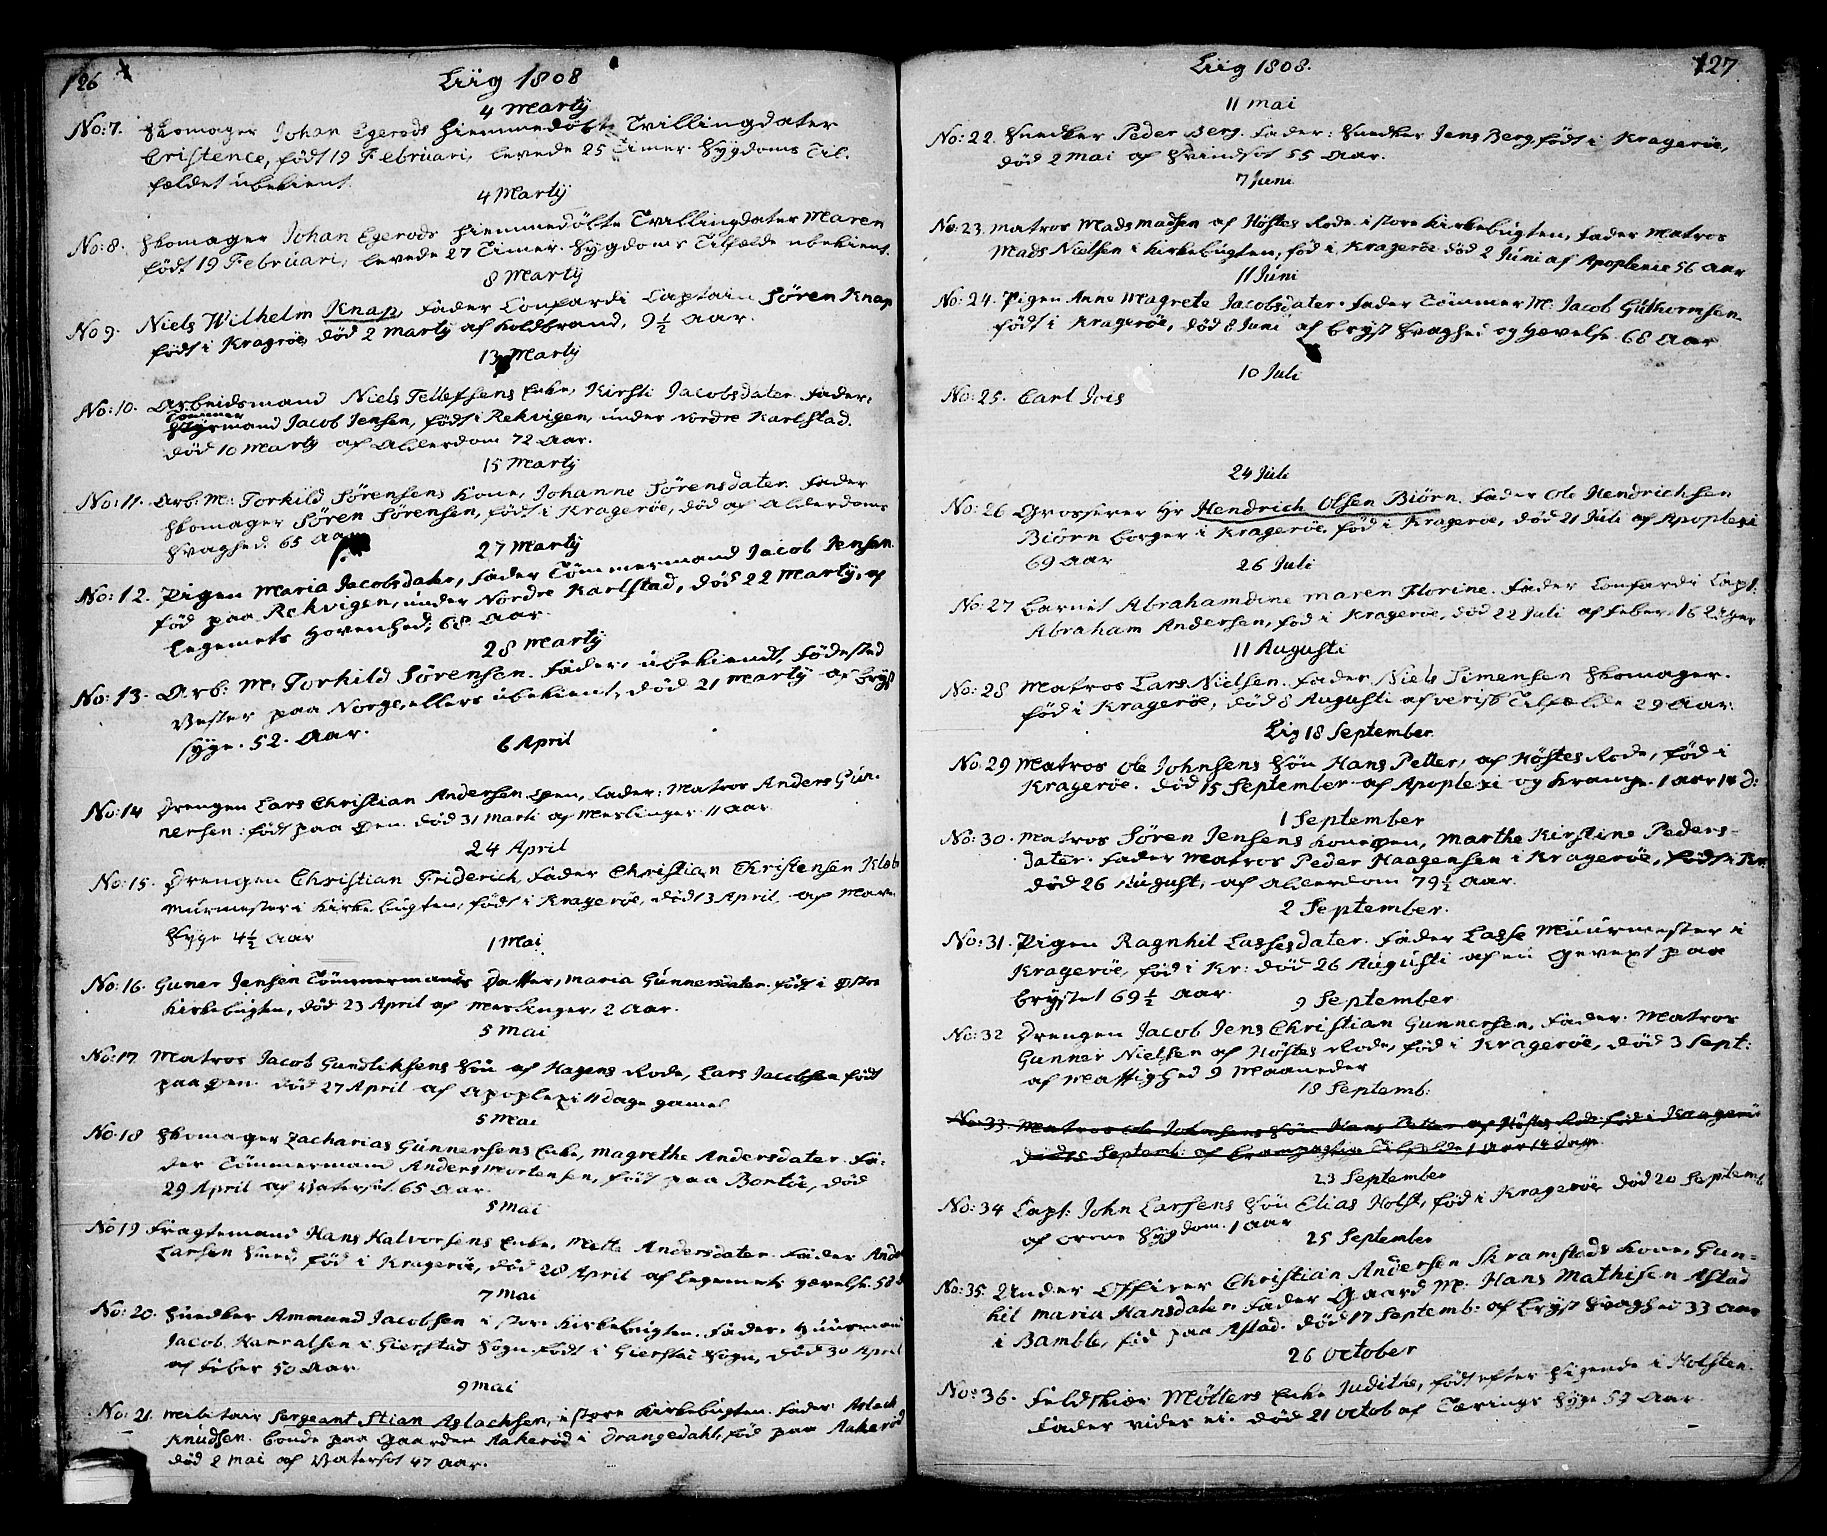 126
Liig 1808
4 Martÿ
No: 7. Skomager Johan Egerods hiemmedöbte Tvillingdater
Cristence, födt 19 Februari, levede 25 Timer. Sÿgdoms Til-
fældet ubekient.
4 Martÿ
No: 8. Skomager Johan Egerods hiemmedöbte Tvillingdater Maren
födt 19 Februari, levede 27 Timer. Sÿgdoms Tilfælde ubekient.
8 Martÿ
No 9. Niels Wilhelm Knap, Fader Confardi Captain Sören Knap
födt i Kragröe, död 2 Martÿ af Koldbrand, 9½ Aar.
13 Martÿ
No: 10. Arbeidsmand Niels Tellefsens Enke, Kirsti Jacobsdater. Fader,
Tömmer
Stÿrmand Jacob Jensen, födt i Rekvigen, under Nordre Karlstad.
död 10 Martÿ af Alderdom 72 Aar.
15 Martÿ
No: 11. Arb: M: Torkild Sörensens Kone, Johanne Sörensdater. Fader
Skomager Sören Sörensen, födt i Krageröe, död af Alderdoms
Svaghed. 65 Aar
27 Martÿ
No: 12. Pigen Maria Jacobsdater, Fader Tömmermand Jacob Jensen
föd paa Rekvigen, under Nordre Karlstad, död 22 Martÿ, af
Legemets Hovenhed, 68 Aar.
28 Martÿ
No: 13. Arb: M: Torkild Sörensen. Fader, ubekiendt, Födested
Vester paa Norge, ellers ubekient, död 21 Martÿ af Brÿst
sÿge. 52. Aar.
6 April
No: 14 Drengen Lars Christian Andersen Öen, Fader: Matros Anders Gun-
nersen: födt paa Öen. död 31 Marti af Meslinger 11 Aar.
24 April
No: 15. Drengen Christian Friderich, Fader Christian Christensen
Murmester i Kirkebugten, födt i Kragröe, död 13 April af Mave
Sÿge 4½ Aar
1 Mai
No: 16. Guner Jensen Tömmermands Datter, Maria Gunnersdater. födt i Östre
Kirkebugten, död 23 April af Meslinger, 2 Aar.
5 Mai
No: 17 Matros Jacob Gundliksens Sön af Hagens Rode, Lars Jacobsen födt
paa Öen. död 27 April af Apoplexi 11 dage gamel
5 Mai
No: 18 Skomager Zacharias Gunnersens Enke, Magrethe Andersdater. Fa-
der Tömmermand Anders Mortensen, födt paa Bortöe, död
29 April af Vatersot 65 Aar.
5 Mai
No 19 Fragtemand Hans Halvorsens Enke, Mette Andersdater. Fader Anders
Larsen Smed, föd i Kragröe, död 28 April af Legemets Hævelse. 58
7 Mai
No: 20. Snedker Ammund Jacobsen i store Kirkebugten. Fader, Huusmand
Jacob Harralsen i Gierstad Sogn. födt i Gierstad Sogn, död 30 April
af Feber 50 Aar
9 Mai
No: 21. Militair Sergeant Stian Aslachsen, i store Kirkebugten. Fader Aslach
Knudsen. bonde paa Gaarden Aakeröd i Drangedahl, föd paa Aakeröd
död 2 Mai af Vatersot 47 Aar.
127
Liig 1808.
11 Mai
No: 22. Snedker Peder Berg. Fader: Snedker Jens Berg, födt i Krageröe,
död 2 Mai af Svindsot 55 Aar.
7 Juni
No: 23. Matros Mads Madsen af Höstes Rode i store Kirkebugten, Fader Matros
Mads Nielsen i Kirkebugten, föd i Krageröe död 2 Juni af Apoplexie 56 Aar
11 Juni
No: 24. Pigen Anne Magrete Jacobsdater. Fader Tömmer M: Jacob Guthormsen.
födt i Krageröe, död 8 Juni af Brÿst Svaghed og Hævelse 68 Aar
10 Juli
No: 25. Carl Jois
24 Juli
No: 26 Grosserer Hr Hendrich Olsen Biörn. Fader Ole Hendrichsen
Biörn borger i Krageröe, föd i Krageröe, död 21 Juli af Apoplexi
69 Aar
26 Juli
No: 27 Barnet Abrahamdine Maren Florine. Fader Confardi Capt:
Abraham Andersen, föd i Krageröe, död 22 Juli af Feber. 16 Uger
11 Augusti
No: 28 Matros Lars Nielsen. Fader Niels Simensen Skomager.
föd i Krageröe, död 8 Augusti af veris Tilfælde 29 Aar.
Lig 18 September
No: 29 Matros Ole Johnsens Sön Hans Petter, af Höstes Rode, föd i
Krageröe. död 15 September af Apoplexi og Krampe. 1 aar 14 D:
1 September
No: 30. Matros Sören Jensens Kone Öen, Marthe Kirstine Peders-
dater. Fader Matros Peder Haagensen i Krageröe, födt i Kr.
död 26 August, af Alderdom 79½ Aar.
2 September.
No: 31. Pigen Ragnhil Lassesdater. Fader Lasse Muurmester i
Krageröe, föd i Kr: död 26 Augusti af en Gevext paa
Brÿstet 69½ Aar.
9 September
No: 32 Drengen Jacob Jens Christian Gunnersen, Fader. Matros
Gunner Nielsen af Höstes Rode, föd i Krageröe, död 3 Sept:
af Mattighed 9 Maaneder
18 Septemb:
No: 33. Matros Ole Johnsens Sön Hans Petter af Höstes Rode föd i Krageröe
död 15 Septemb: af Tilfælde 1 Aar 14 Dage
23 September
No: 34 Capt: John Larsens Sön Elias Holst, föd i Krageröe, död 20 Septemb
af orme Sÿgdom. 1 aar
25 September
No: 35. Under Officer Christian Andersen Skramstads Kone, Gun-
hil Maria Hansdater. Fader Gaard M: Hans Mathisen Astad
i Bamble, föd paa Astad. död 17 Septemb: af Brÿst Svaghed 33 aar
26 October
No: 36. Feldskiær Möllers Enke Judithe, födt efter Sigende i Holsten.
Fader vides ei. död 21 Octob af Tærings Sÿge 59 Aar.